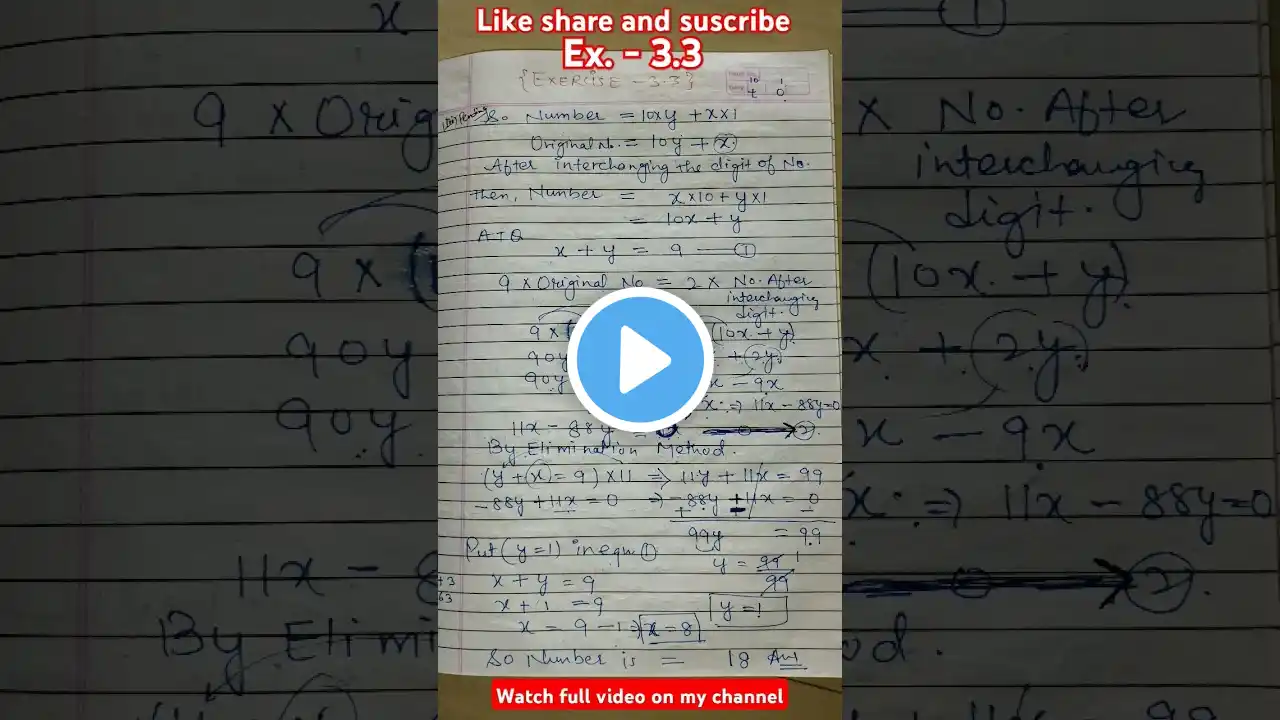 Like share and suscribe
Ex. - 3.3
{EXERCISE - 3.3}
So Number = 10xy + x×1
Original No. = 10y + x.
After interchanging the digit of No.
then, Number = x×10 + y×1
= 10x + y
ATQ
x + y = 9 — ①
9 × Original No = 2 × No. After
interchanging
digit.
9 × (10x + y)
90y + 2y.
90y x - 9x
x ⇒ 11x - 88y=0
11x - 88y = ②
By Elimination Method.
(y + x = 9) ×11 ⇒ 11y + 11x = 99
-88y + 11x = 0 ⇒ -88y + 11x = 0
99y = 99
Put (y=1) in equn ①
y = 99 1
99
x + y = 9
x + 1 = 9
y = 1
x = 9 - 1 ⇒ x = 8
So Number is = 18 Ans
Watch full video on my channel